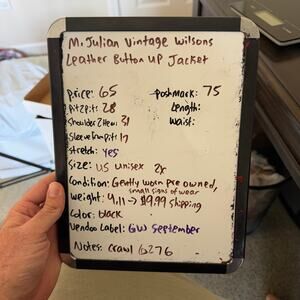 M. Julian Vintage Wilsons
Leather Button Up Jacket
Price: 65 Poshmark: 75
Pit2pit: 28 Length:
Shoulder2Hem: 31 Waist:
Sleeve(armpit: 17
Stretch: yes
Size: US unisex 2x
Condition: Gently worn pre owned,
small signs of wear
Weight: 4.11 → $9.99 shipping
Color: black
Vendoo Label: GW September
Notes: Crawl 6276